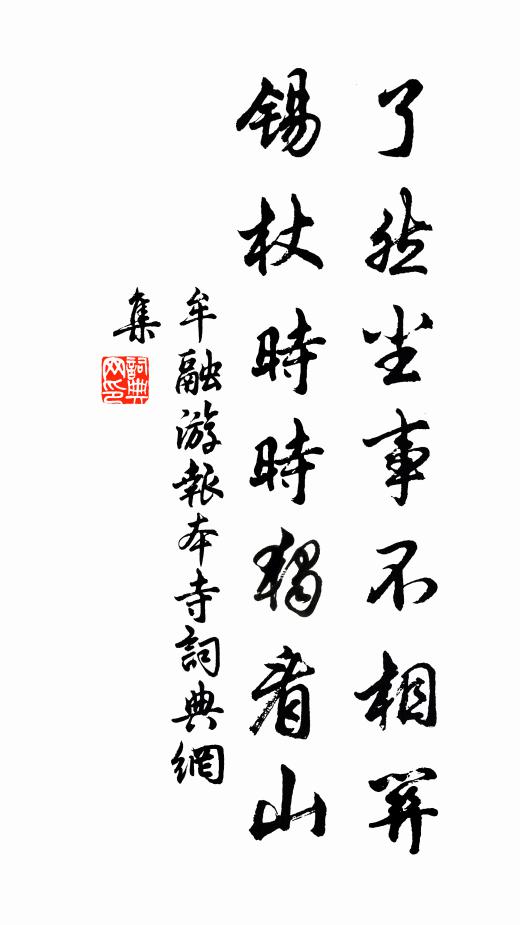 了然尘事不相關
錫杖時時獨看山
牟融游報本寺詞典網
集
詞典
网印